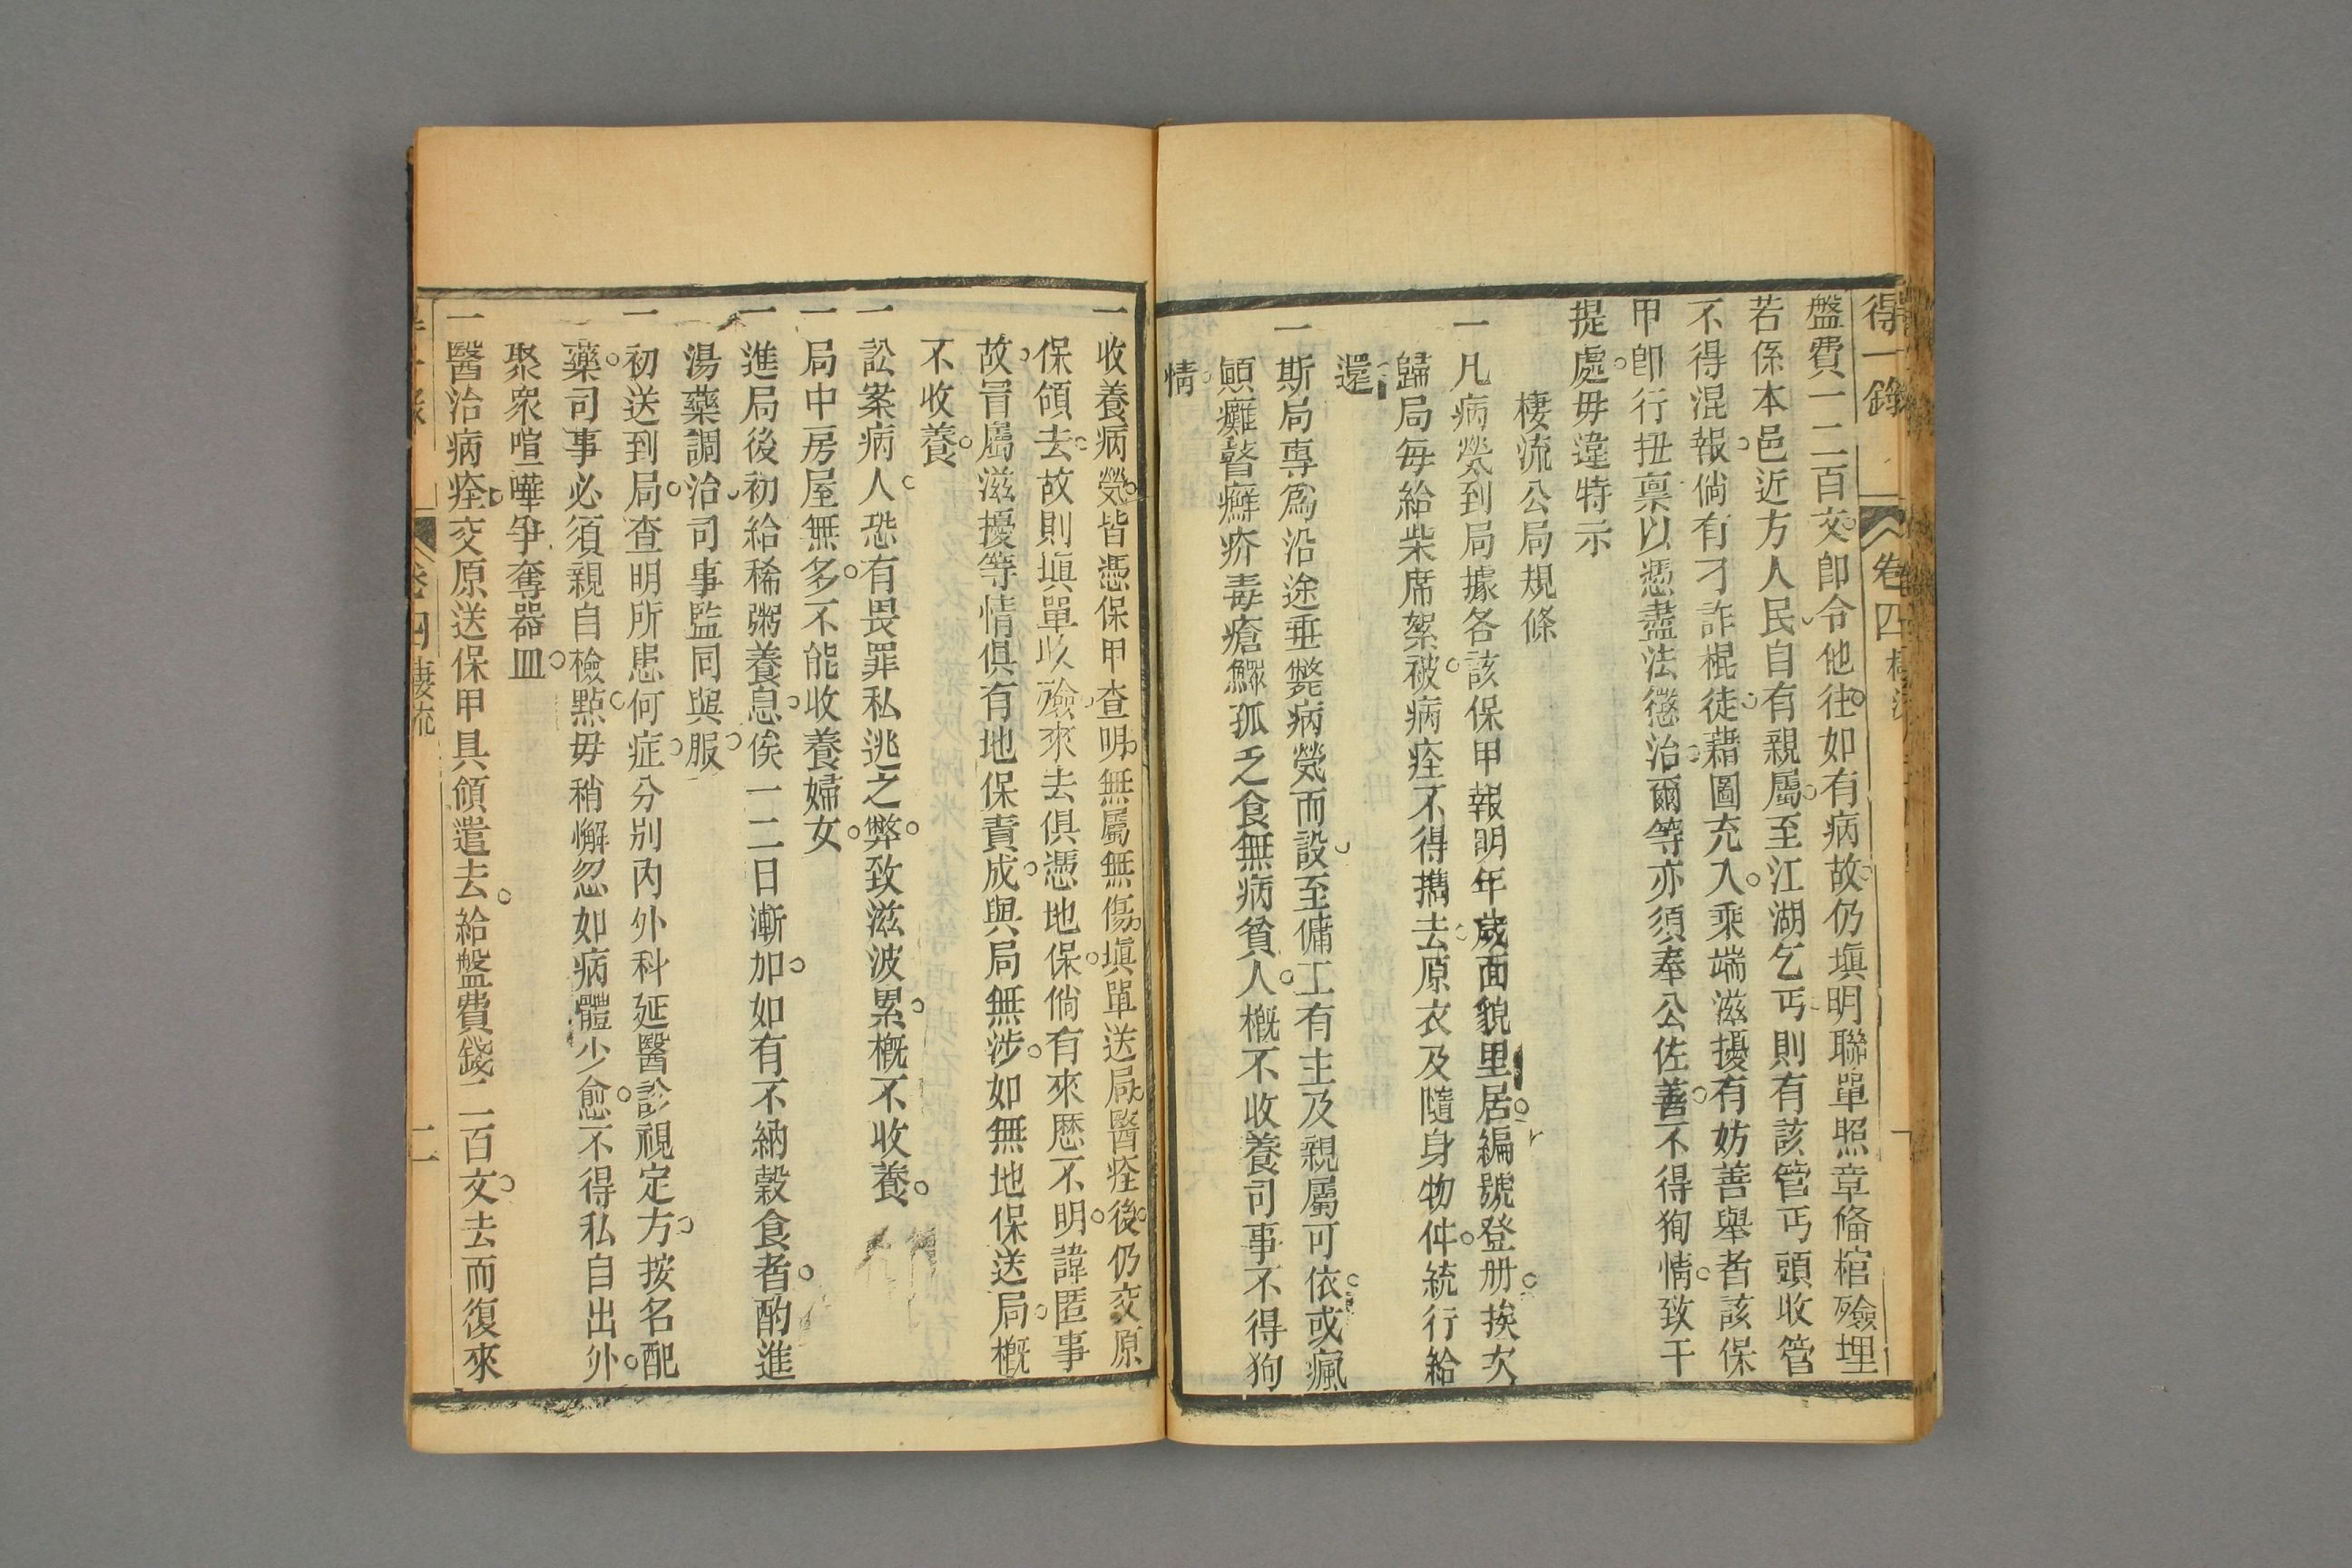 得一錄 卷四
盤費一二百文卽令他往如有病故仍塡明聯單照章俻棺殮埋
若係本邑近方人民自有親屬至江湖乞丐則有該管丐頭收管
不得混報倘有刁詐棍徒藉圖充入乘端滋擾有妨善舉者該保
甲卽行扭禀以憑盡法懲治爾等亦須奉公佐善不得狥情致干
提處毋違特示
棲流公局規條
一凡病煢到局據各該保甲報明年歲面貌里居編號登册挨次
歸局每給柴席絮被病痊不得擕去原衣及隨身物件統行給
還
一斯局專爲沿途垂斃病煢而設至傭工有主及親屬可依或瘋
顚癱瞽癬疥毒瘡鰥孤乏食無病貧人槪不收養司事不得狥
情
一收養病煢皆憑保甲查明無屬無傷塡單送局醫痊後仍交原
保領去故則塡單收殮來去俱憑地保倘有來歷不明諱匿事
故冐屬滋擾等情俱有地保責成與局無涉如無地保送局槪
不收養
一訟案病人恐有畏罪私逃之弊致滋波累槪不收養
一局中房屋無多不能收養婦女
一進局後初給稀粥養息俟一二日漸加如有不納穀食者酌進
湯藥調治司事監同與服
一初送到局查明所患何症分別內外科延醫診視定方按名配
藥司事必須親自檢點毋稍懈忽如病體少愈不得私自出外
聚衆喧嘩爭奪器皿
一醫治病痊交原送保甲具領遣去給盤費錢二百文去而復來
卷四 棲流 二